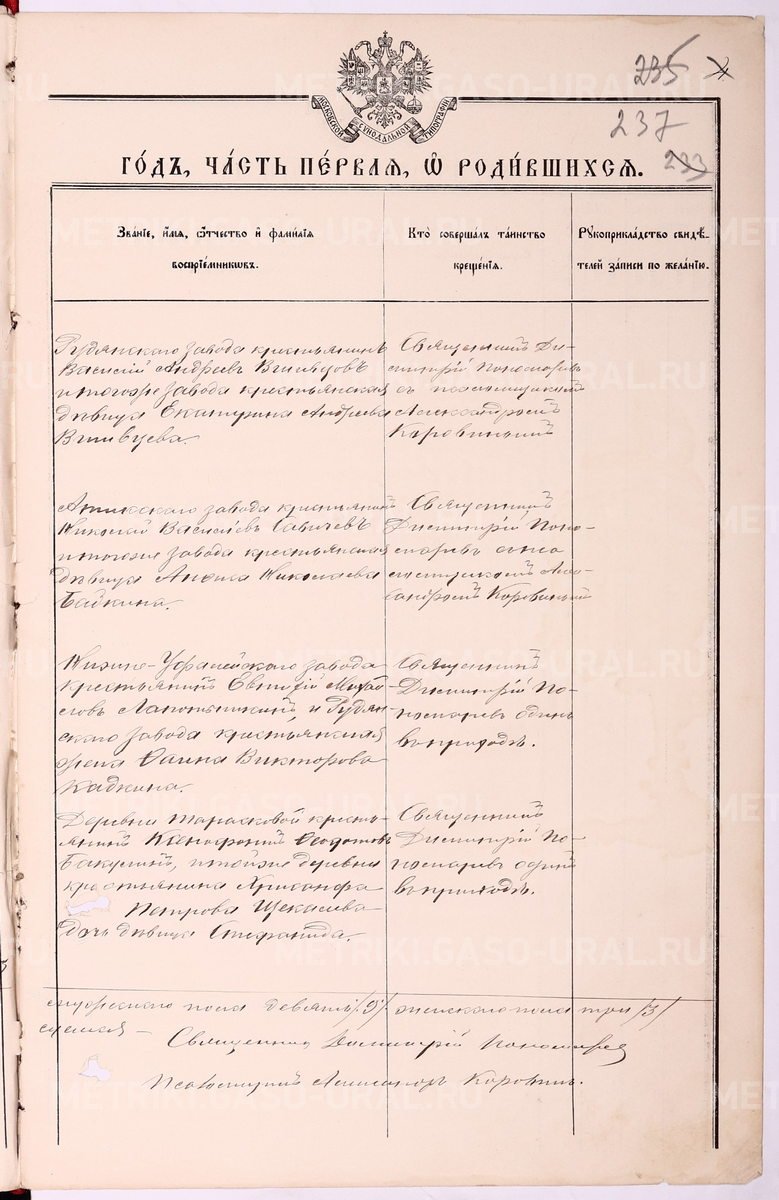 235
237
233
МОСКОВСКОЙ СѴНОДАЛЬНОЙ ТИПОГРАФІИ
ГО́ДЪ, ЧА́СТЬ ПЕ́РВАЯ, Ѽ РОДИ́ВШИХСЯ.
Зва́нїе, и҆́мя, ѻ҆́тчество и҆ фами́лїя
воспрїе́мникѡвъ.
Кто̀ соверша́лъ та́инство
креще́нїя.
Рꙋкоприкла́дство свидѣ́-
телей за́писи по жела́нїю.
Рудянскаго завода крестьянинъ
Василій Андреевъ
и тогоже завода крестьянская
дѣвица Екатерина Андреева
Священникъ Ди-
митрій Пономаревъ
съ псаломщикомъ
Александромъ
Коровинымъ
завода крестьянинъ
Николай Васильевъ
и тогоже завода крестьянская
дѣвица Николаева
Бадкина.
Священникъ
Димитрій Поно-
маревъ
Але-
ксандромъ Коровинымъ
Нижне-Уфалейскаго завода
крестьянинъ Евгеній Михай-
ловъ и Рудян-
скаго завода крестьянская
жена Викторова
Кадкина.
Священникъ
Димитрій По-
номаревъ одинъ
въ приходѣ.
Деревни Тарасковой кресть-
янинъ Ксенофонтъ Ѳеодотовъ
Бакулинъ, и тойже деревни
крестьянина Хрисанфа
Петрова Щекалева
дочь дѣвица Стефанида.
Священникъ
Димитрій По-
номаревъ одинъ
въ приходѣ.
мужескаго пола девять /9/ женскаго пола три /3/
Священникъ Димитрій Пономаревъ
Псаломщикъ Александръ Коровинъ.
METRIKI.GASO-URAL.RU